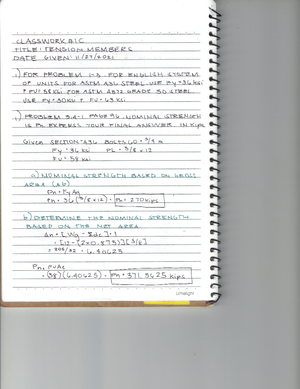 CLASSWORK #1C
TITLE: TENSION MEMBERS
DATE GIVEN: 11/29/2021
1) FOR PROBLEM 1-3 FOR ENGLISH SYSTEM
OF UNITS FOR ASTM A36 STEEL USE Fy = 36 ksi
& Fu = 58 ksi. FOR ASTM A572 GRADE 50 STEEL
USE Fy = 50 ksi & Fu = 65 ksi.
1) PROBLEM 3.2-1 PAGE 96. NOMINAL STRENGTH
IS Pn. EXPRESS YOUR FINAL ANSWER IN kips
GIVEN SECTION: A36 BOLTS
Fy = 36 ksi PL = 5/8 x 12
Fu = 58 ksi
a) NOMINAL STRENGTH BASED ON GROSS
AREA (AG)
Pn = FyAg
Pn = 36 (5/8 x 12) = Pn = 270 kips
b) DETERMINE THE NOMINAL STRENGTH
BASED ON THE NET AREA
An = [Wg - Σdc] · t
= [12 - (2x0.875)][5/8]
= 205/32 = 6.40625
Pn = FuAe
= (58)(6.40625) = Pn = 371.5625 kips